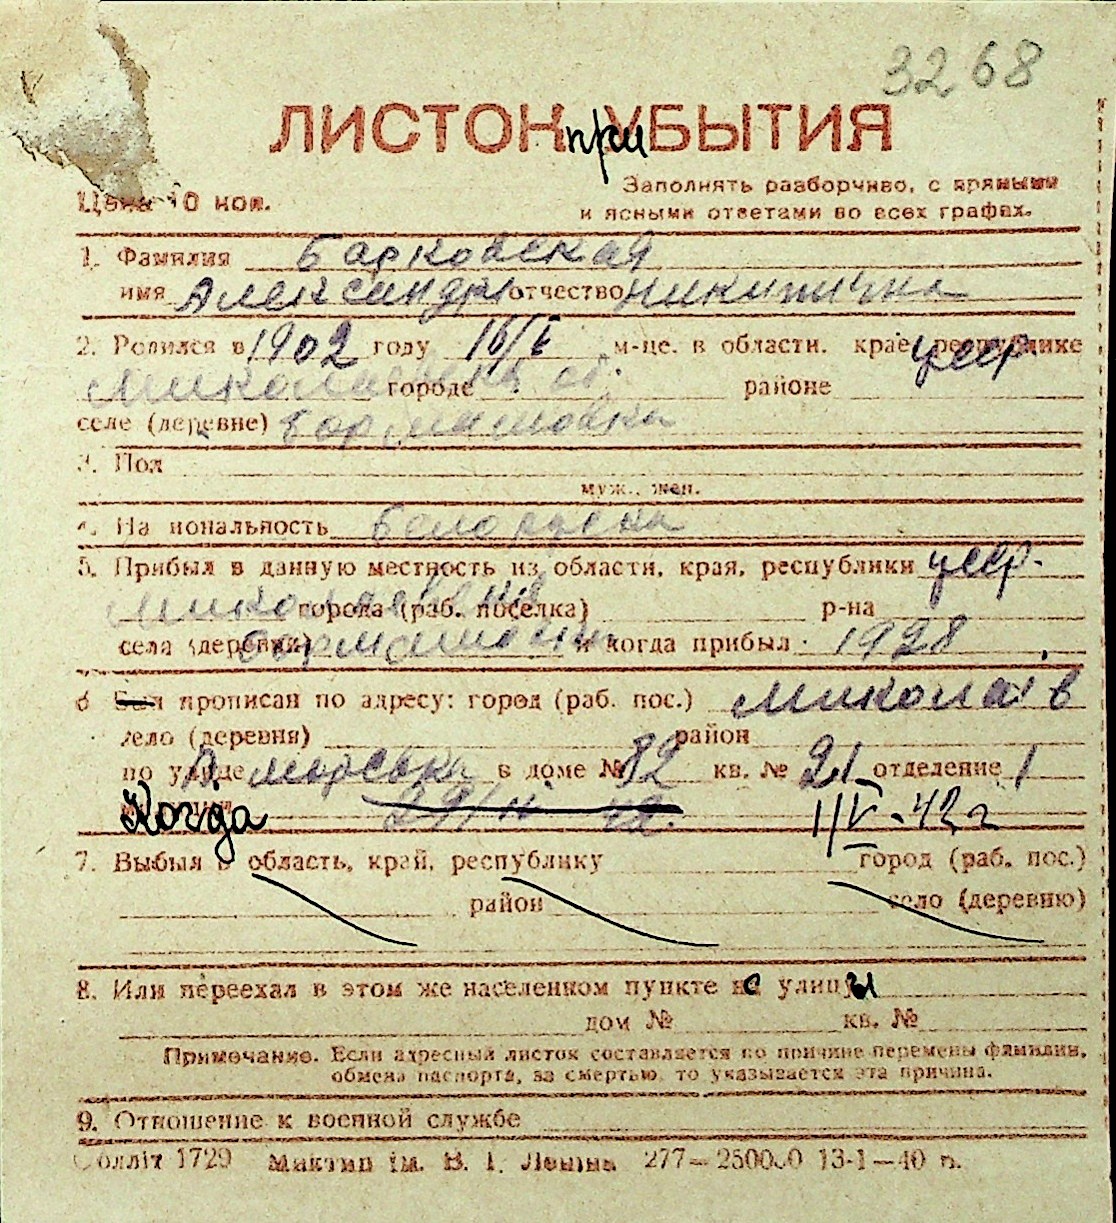 3268
ЛИСТОК при УБЫТИЯ
Цена 10 коп.
Заполнять разборчиво, с прямыми
и ясными ответами во всех графах.
1. Фамилия Барковская
имя Александра отчество Никитична
2. Родился в 1902 году 16/V м-це. в области. крае, республике УССР
Миколаевка об. городе районе
селе (деревне)
3. Пол
муж., жен.
4. Национальность Белоруска
5. Прибыл в данную местность из области, края, республики УССР.
города (раб. поселка) р-на
села (деревни) и когда прибыл 1928
6 Был прописан по адресу: город (раб. пос.) Миколаів
село (деревня) район
по улице в доме № 82 кв. № 21 отделение 1
Когда 1/V-42 г
7. Выбыл в область, край, республику город (раб. пос.)
район село (деревню)
8. Или переехал в этом же населенном пункте с улицы
дом № кв. №
Примечание. Если адресный листок составляется по причине перемены фамилии,
обмена паспорта, за смертью, то указывается эта причина.
9. Отношение к военной службе
Облліт 1729 Миктип ім. В. І. Леніна 277—250000 13-1—40 р.